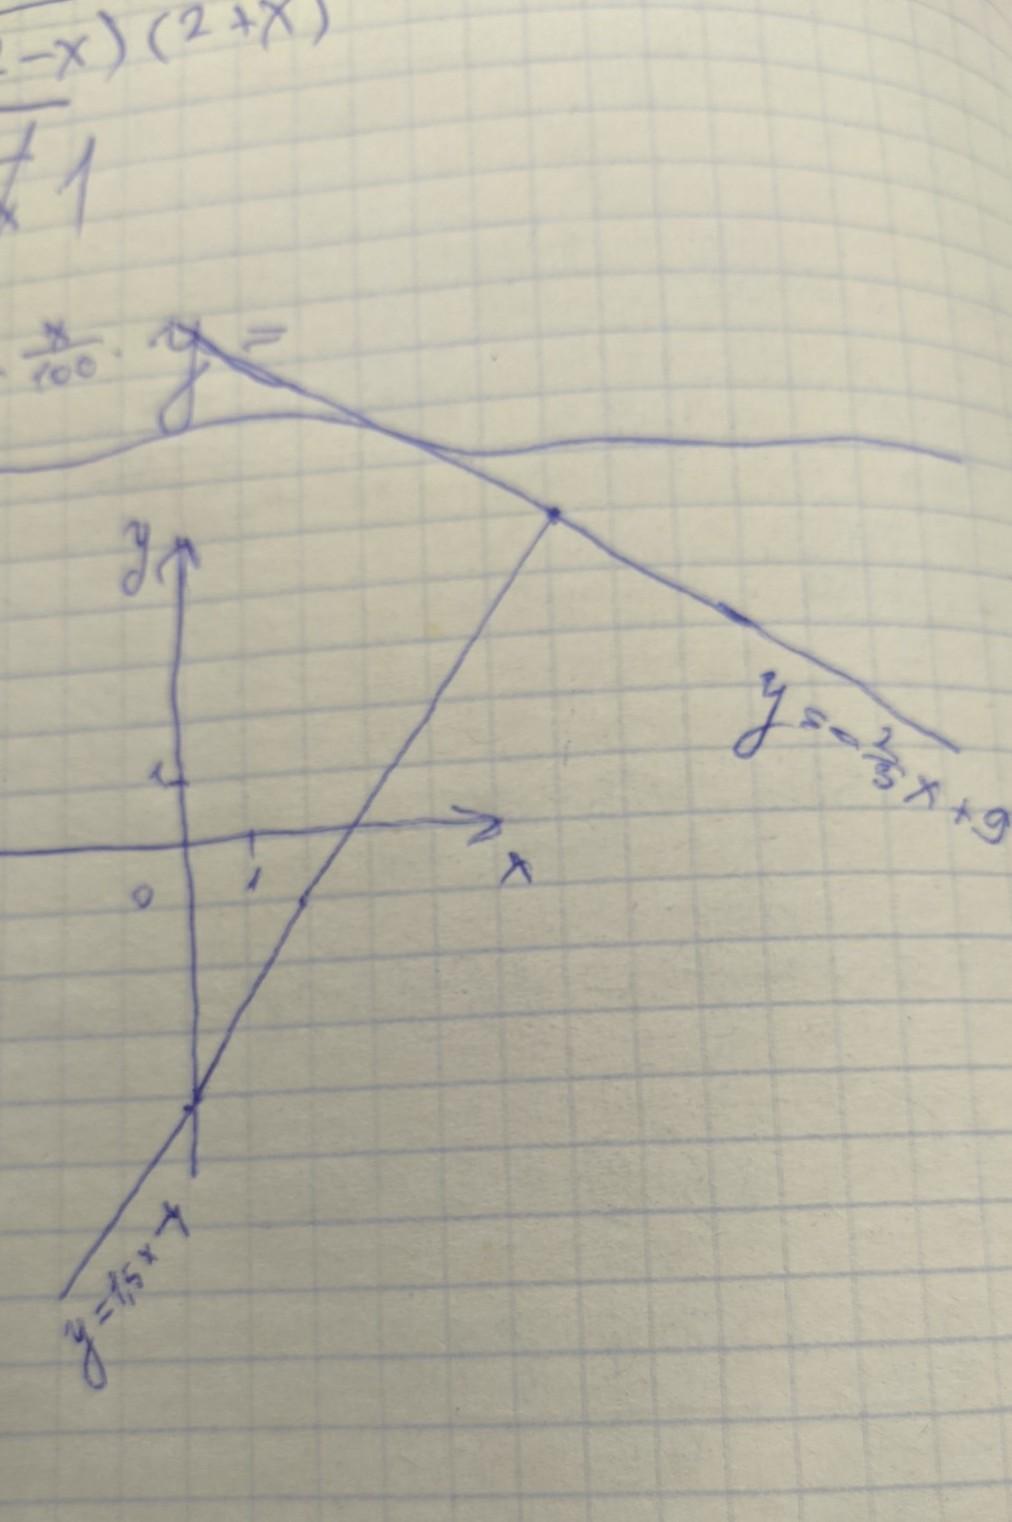 2-x)(2+x)
≠ 1
x/100 · y =
y
1
0 1 x
y = -2/3 x + 9
y = 1,5 x x